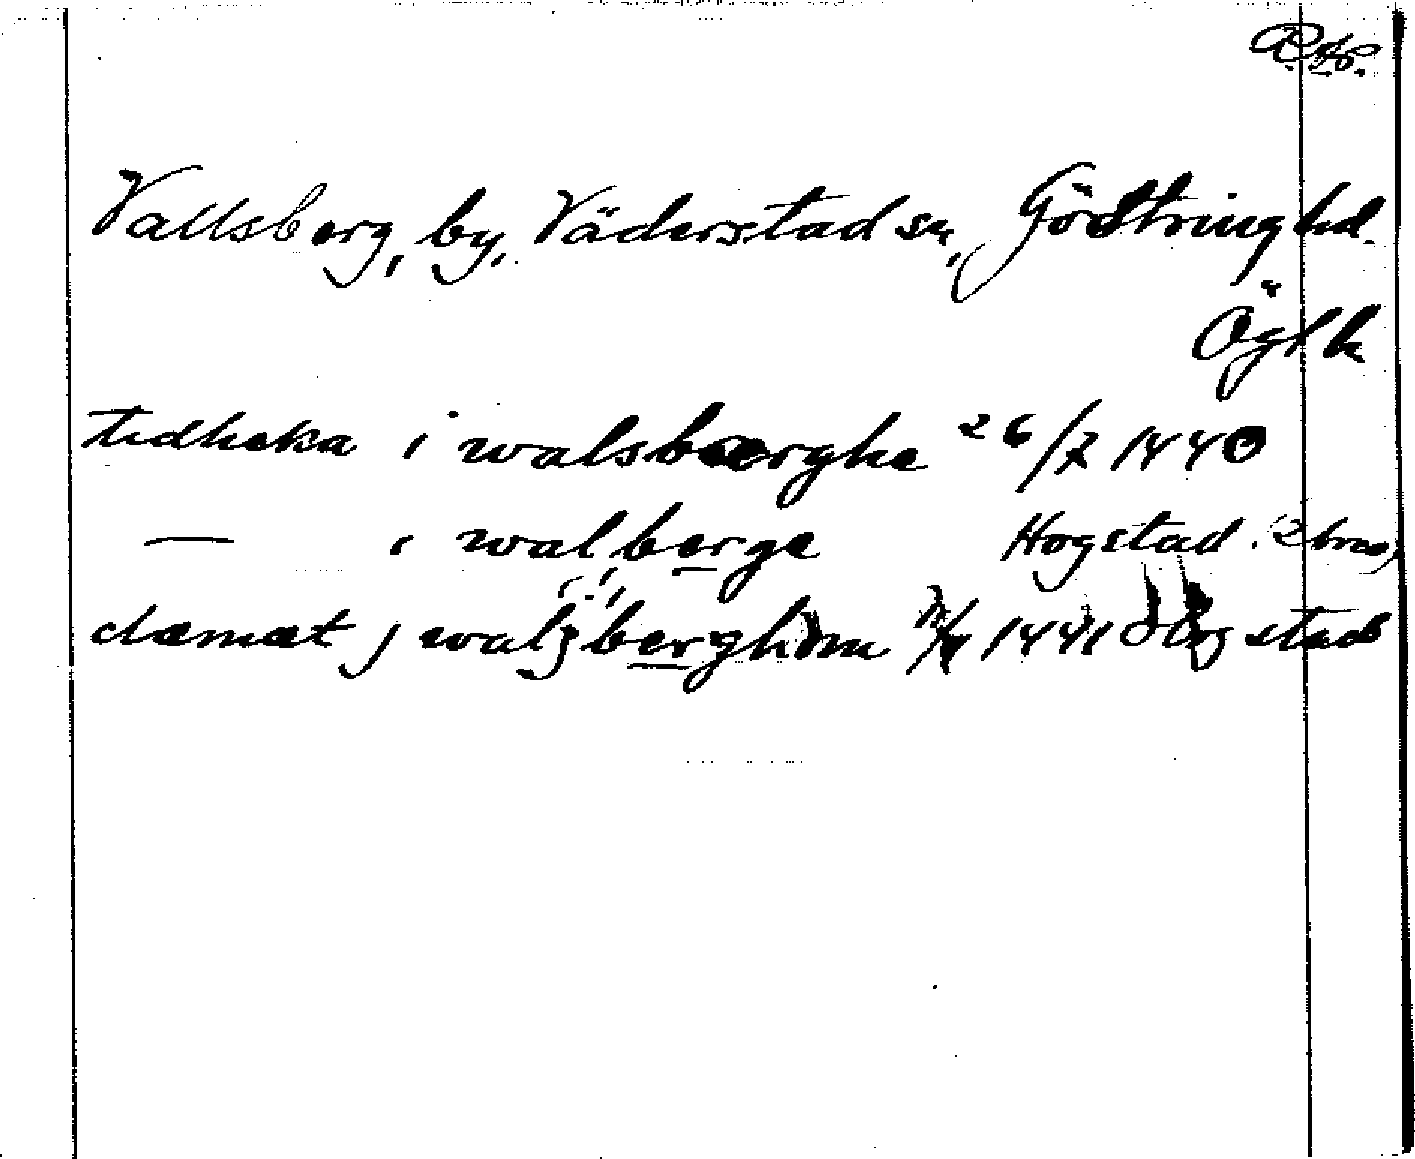 Vallsberg, by, Väderstad sn, Göstring hd.
Ögl k
tidheka i walsberghe 26/7 1440
— i walsberge Hogstad. (2 brev)
clæmæt j walsberghom 1441 Hogstad